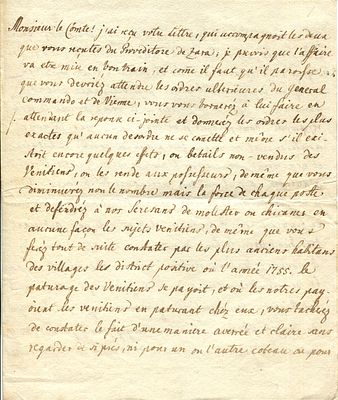 Monsieur le Comte! j'ai reçu votre lettre, qui accompagnoit les deux
que vous reçutes du Proveditore de Zara; je prevois que l'affaire
va etre mise en bon train, et come il faut qu'il paroisse
que vous devriez attendre les ordres ulterieures du General
commando et de Vienne, vous vous bornerez à lui faire en
attendant la reponse ci-jointe et donnerez les ordres les plus
exactes qu'aucun desordre ne se comette et même s'il exi-
stoit encore quelques efets, ou betails non-vendus des
Venitiens, on les rende aux possesseurs, de même que vous
diminuerez non le nombre mais la force de chaque poste
et defendrez à nos Seresans de molester ou chicaner en
aucune façon les sujets venitiens, de même que vous
ferez tout de suite constater par les plus anciens habitans
des villages les district positive où l'année 1755. le
paturage des Venitiens se payoit, et où les notres pay-
oient les venitiens en paturant chez eux, vous tacherez
de constater le fait d'une maniere averée et claire sans
regarder de si près, ni pour un ou l'autre coteau ou pour